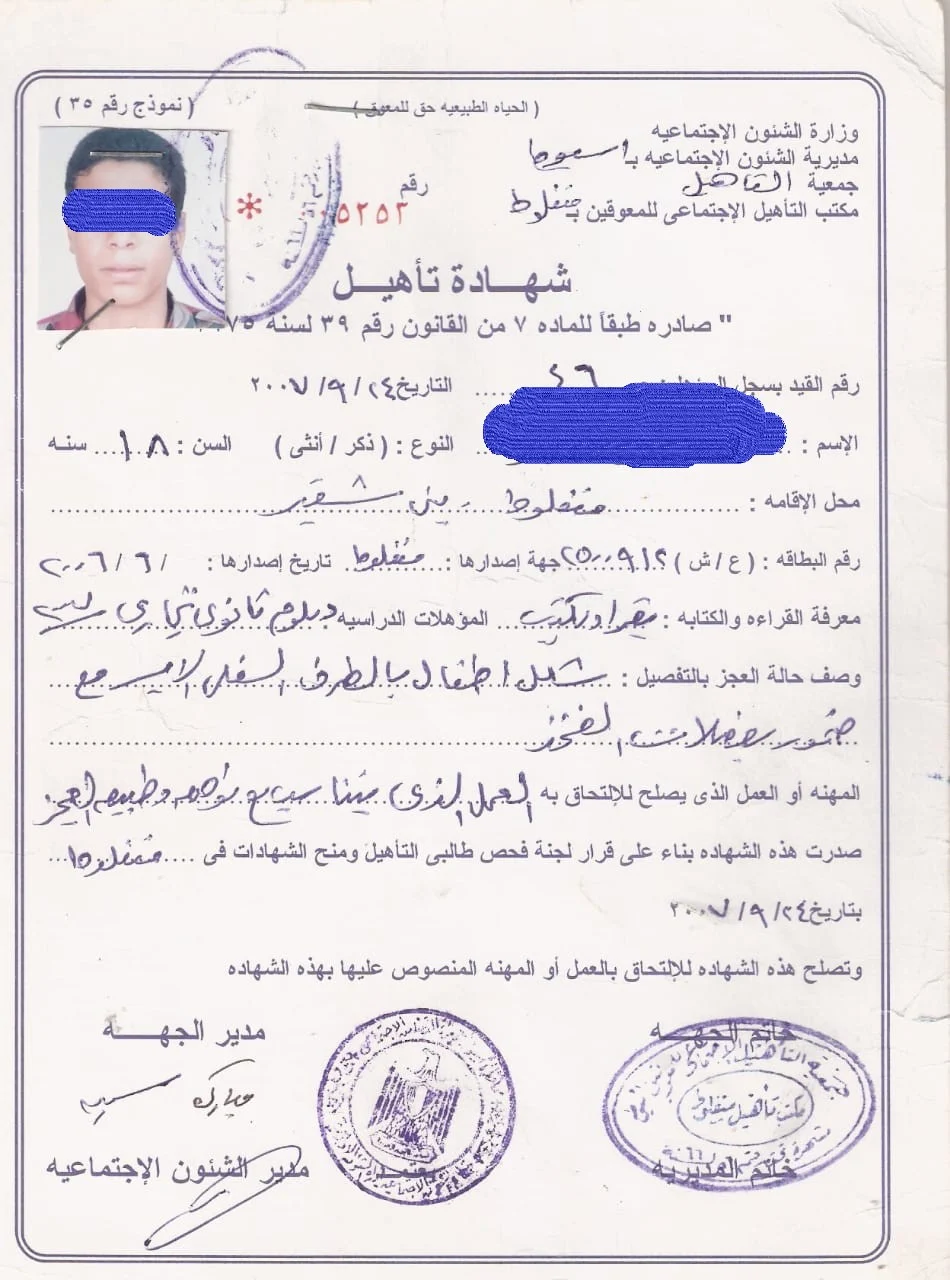 ( الحياه الطبيعيه حق للمعوق )
( نموذج رقم ٣٥ )
وزارة الشئون الإجتماعيه
مديرية الشئون الإجتماعيه بـ اسيوط
جمعية التأهيل
مكتب التأهيل الإجتماعى للمعوقين بـ منفلوط
رقم
٥٢٥٢ *
شهـادة تأهيـل
" صادره طبقاً للماده ٧ من القانون رقم ٣٩ لسنه ٧٥
رقم القيد بسجل ٤٦ التاريخ ٢٤/٩/٢٠٠٧
الإسم : النوع : ( ذكر / أنثى ) السن : ١٨ سنه
محل الإقامه : منفلوط - بنى شقير
رقم البطاقه : ( ع / ش ) جهة إصدارها : منفلوط تاريخ إصدارها : ٦/٦/٢٠٠٦
معرفة القراءه والكتابه : يقرأ ويكتب المؤهلات الدراسيه دبلوم ثانوى تجارى
وصف حالة العجز بالتفصيل : شلل اطفال بالطرف السفلى الايسر مع
ضمور بعضلات الفخذ
المهنه أو العمل الذى يصلح للإلتحاق به العمل الذى يتناسب مع مؤهله وطبيعه العجز
صدرت هذه الشهاده بناء على قرار لجنة فحص طالبى التأهيل ومنح الشهادات فى منفلوط
بتاريخ ٢٤/٩/٢٠٠٧
وتصلح هذه الشهاده للإلتحاق بالعمل أو المهنه المنصوص عليها بهذه الشهاده
خاتم الجهـه
مدير الجهـه
مبارك سيد
مكتب تأهيل منفلوط
خاتم المديريه
يعتمد
مدير الشئون الإجتماعيه